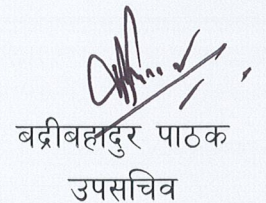 बद्रीबहादुर पाठक
उपसचिव